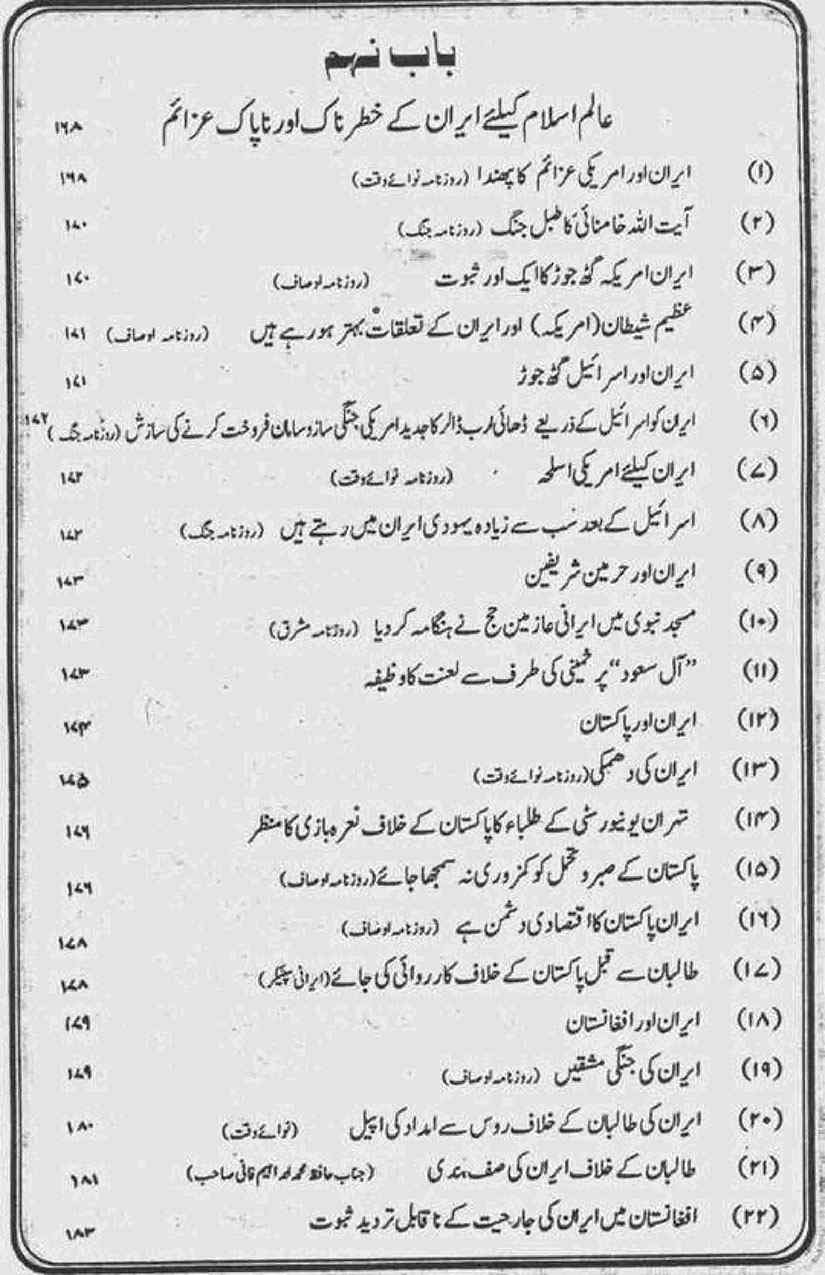 باب نہم
عالم اسلام کیلئے ایران کے خطرناک اور ناپاک عزائم ۱۶۸
(۱) ایران اور امریکی عزائم کا پھندا (روزنامہ نوائے وقت) ۱۶۸
(۲) آیت اللہ خامنائی کا طبل جنگ (روزنامہ جنگ) ۱۷۰
(۳) ایران امریکہ گٹھ جوڑ کا ایک اور ثبوت (روزنامہ اوصاف) ۱۷۰
(۴) عظیم شیطان (امریکہ) اور ایران کے تعلقات بہتر ہو رہے ہیں (روزنامہ اوصاف) ۱۷۱
(۵) ایران اور اسرائیل گٹھ جوڑ ۱۷۱
(۶) ایران کو اسرائیل کے ذریعے ڈھائی ارب ڈالر کا جدید امریکی جنگی ساز و سامان فروخت کرنے کی سازش (روزنامہ جنگ) ۱۷۲
(۷) ایران کیلئے امریکی اسلحہ (روزنامہ نوائے وقت) ۱۷۲
(۸) اسرائیل کے بعد سب سے زیادہ یہودی ایران میں رہتے ہیں (روزنامہ جنگ) ۱۷۲
(۹) ایران اور حرمین شریفین ۱۷۳
(۱۰) مسجد نبوی میں ایرانی عازمین حج نے ہنگامہ کر دیا (روزنامہ مشرق) ۱۷۳
(۱۱) “آل سعود” پر خمینی کی طرف سے لعنت کا وظیفہ ۱۷۳
(۱۲) ایران اور پاکستان ۱۷۴
(۱۳) ایران کی دھمکی (روزنامہ نوائے وقت) ۱۷۵
(۱۴) تہران یونیورسٹی کے طلباء کا پاکستان کے خلاف نعرہ بازی کا منظر ۱۷۶
(۱۵) پاکستان کے صبر و تحمل کو کمزوری نہ سمجھا جائے (روزنامہ اوصاف) ۱۷۶
(۱۶) ایران پاکستان کا اقتصادی دشمن ہے (روزنامہ اوصاف) ۱۷۸
(۱۷) طالبان سے قبل پاکستان کے خلاف کارروائی کی جائے (ایرانی سپیکر) ۱۷۸
(۱۸) ایران اور افغانستان ۱۷۹
(۱۹) ایران کی جنگی مشقیں (روزنامہ اوصاف) ۱۷۹
(۲۰) ایران کی طالبان کے خلاف روس سے امداد کی اپیل (نوائے وقت) ۱۸۰
(۲۱) طالبان کے خلاف ایران کی صف بندی (جناب حافظ محمد ابراہیم فانی صاحب) ۱۸۱
(۲۲) افغانستان میں ایران کی جارحیت کے ناقابل تردید ثبوت ۱۸۳